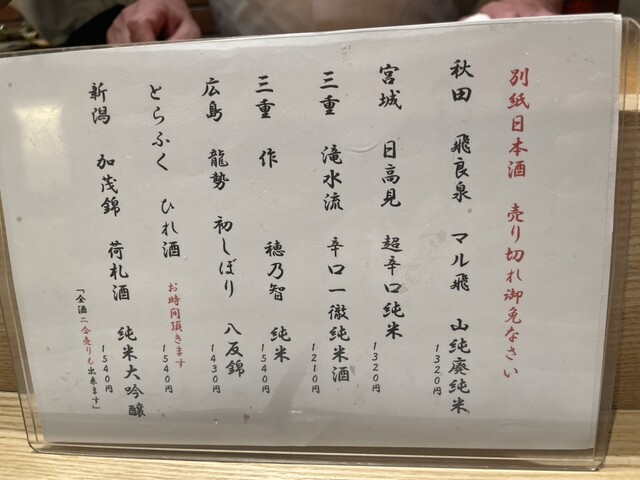 別紙日本酒 売り切れ御免なさい
秋田 飛良泉 マル飛 山純廃純米 1320円
宮城 日高見 超辛口純米 1320円
三重 滝水流 辛口一徹純米酒 1210円
三重 作 穂乃智 純米 1540円
広島 龍勢 初しぼり 八反錦 1430円
とらふく ひれ酒 お時間頂きます 1540円
新潟 加茂錦 荷札酒 純米大吟醸 1540円
「全酒二合売りも出来ます」